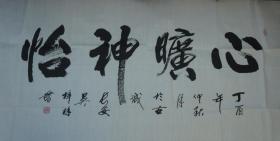 心曠神怡
丁酉
年
仲秋
月
於古
城
長安
吴
書